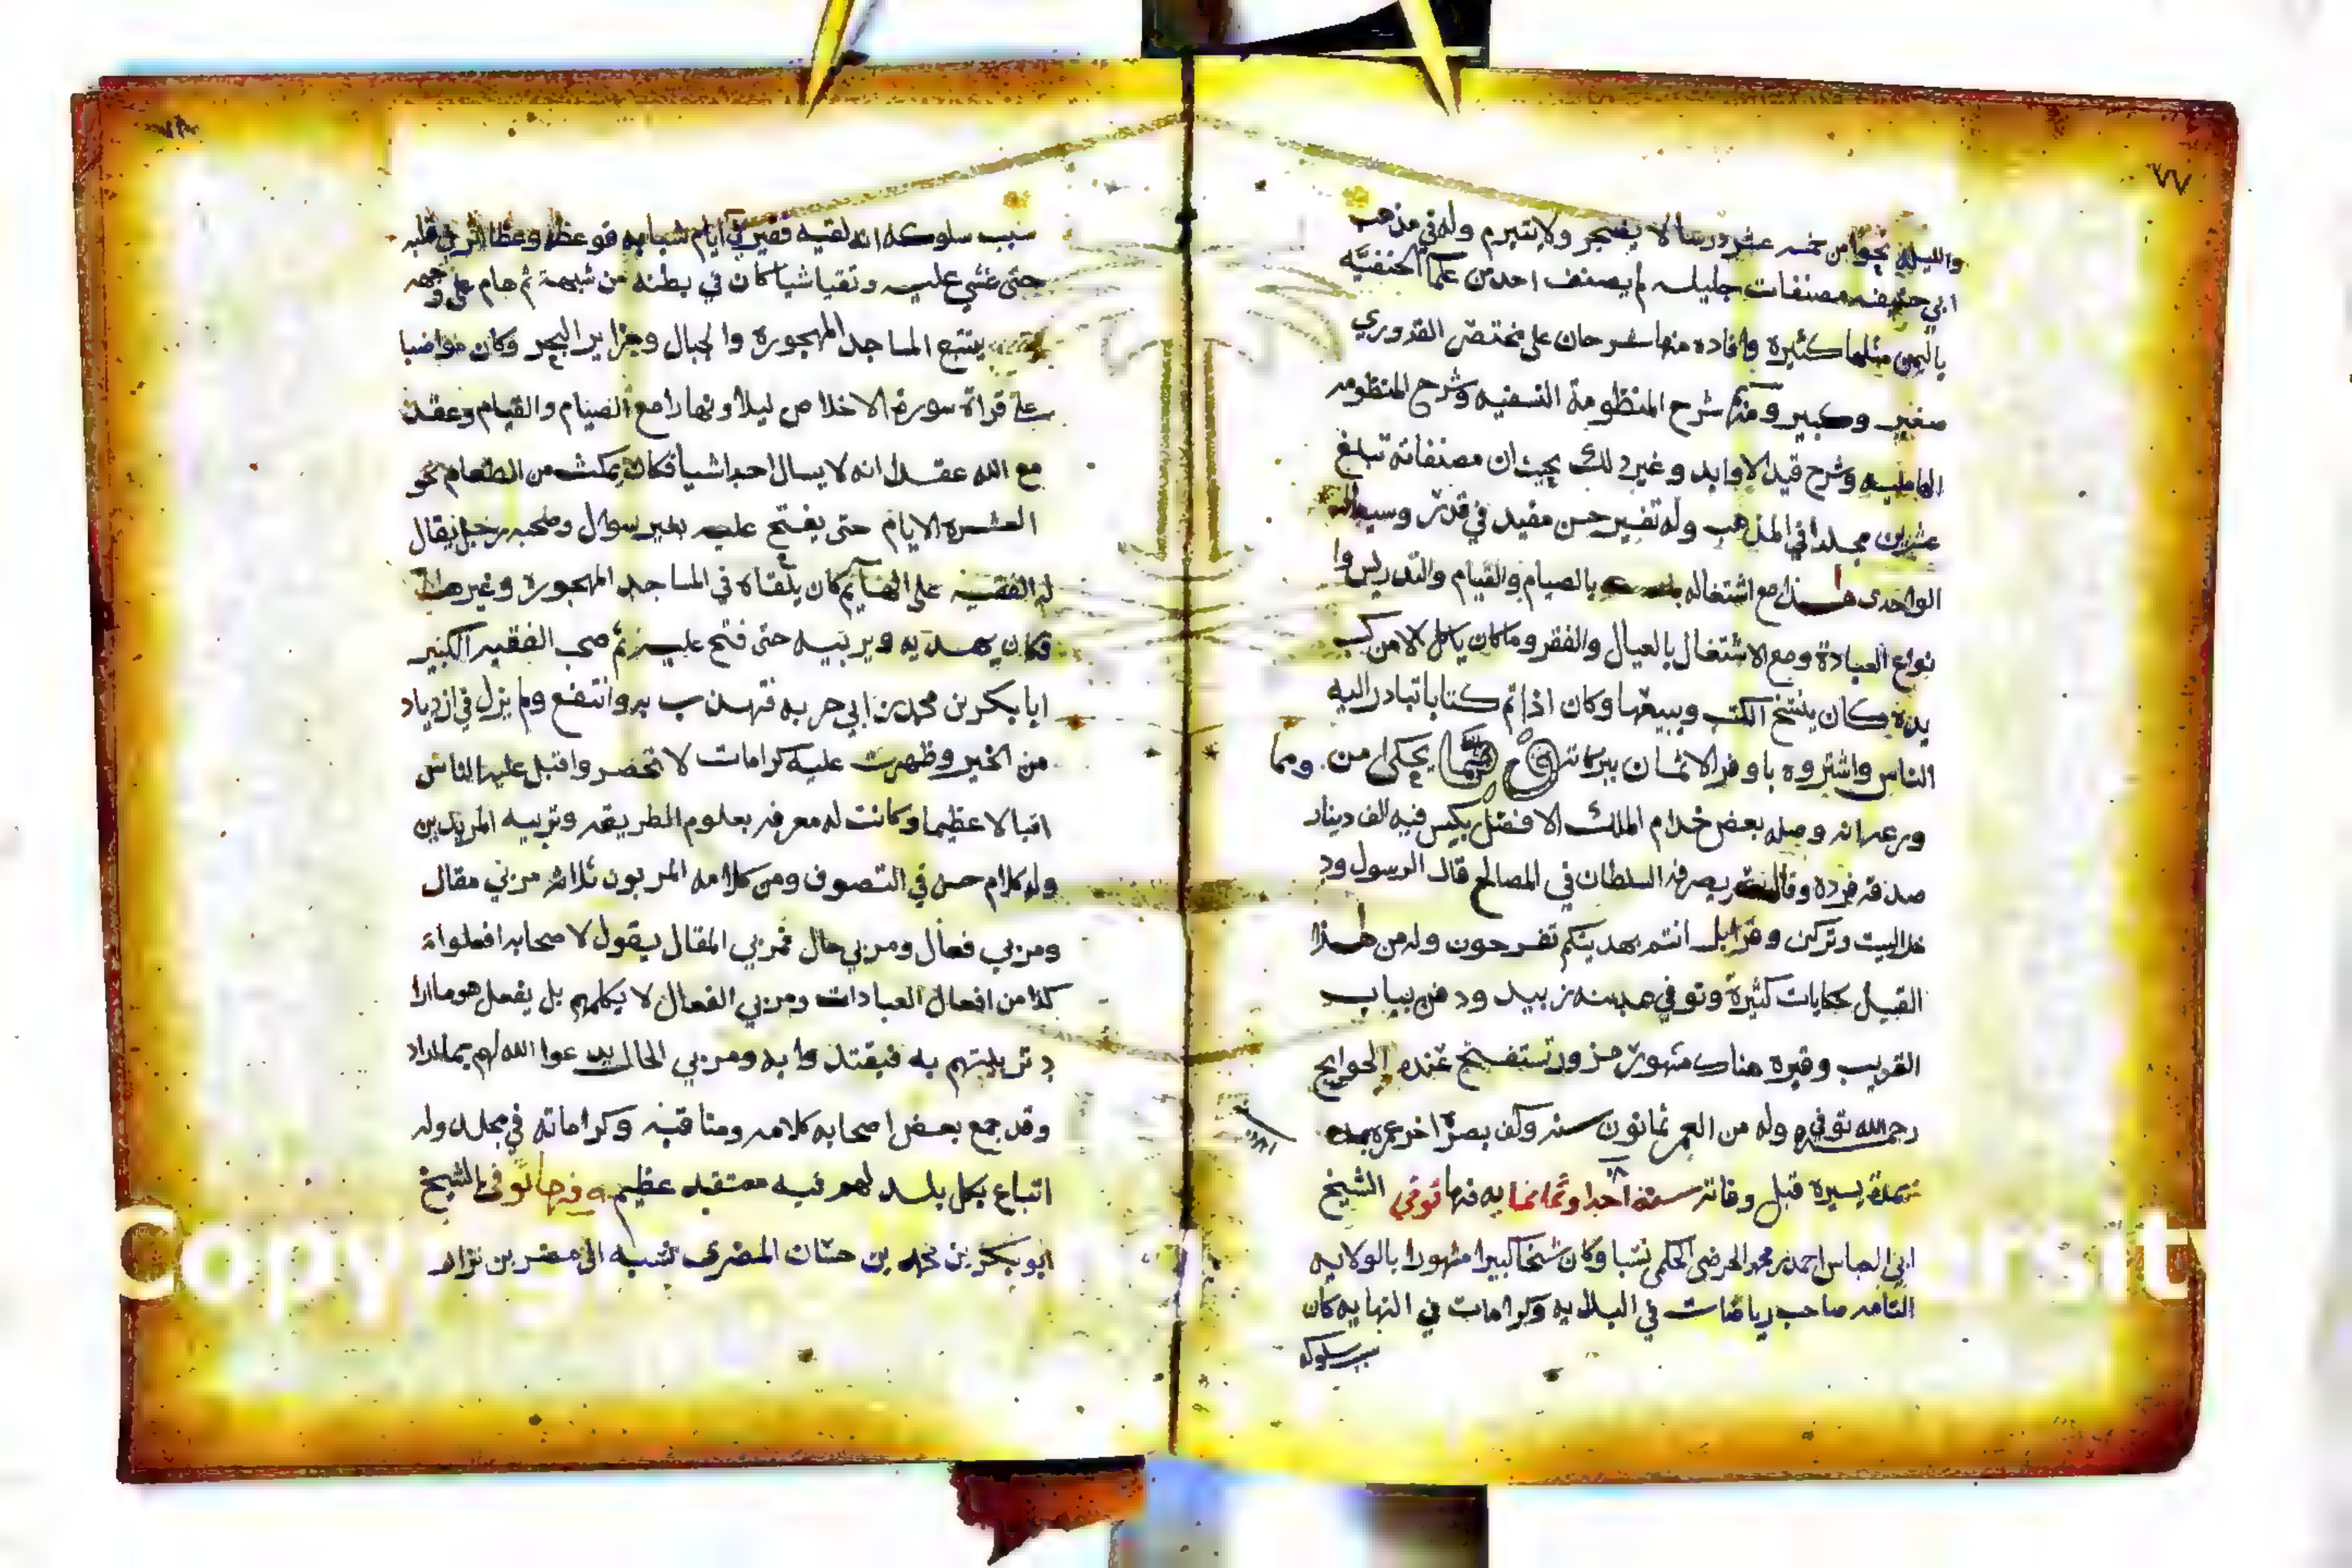 ٧٧
والليلة نحوا من خمسه عشر درسا لا يضجر ولا يتبرم وله في مذهب
ابي حنيفه مصنفات جليله لم يصنف احد من علما الحنفيه
باليمن مثلها كثيرة وافاده منها شرحان على مختصر القدوري
صغير وكبير ومنها شرح المنظومة النسفيه وشرح المنظومه
الهامليه وشرح قيد الاوابد وغير ذلك بحيث ان مصنفاته تبلغ
عشرين مجلدا في المذهب وله تفسير حسن مفيد في قدر وسيط
الواحدى هذا مع اشتغاله بالصيام والقيام والتدريس وا
نواع العبادة ومع الاشتغال بالعيال والفقر وما كان ياكل الا من كسب
يده وكان ينسخ الكتب ويبيعها وكان اذا تم كتابا تبادر اليه
الناس واشتروه باوفر الاثمان ببركاته ومما يحكى من
ورعه انه وصله بعض خدام الملك الافضل بكيس فيه الف دينار
صدقة فرده وقال يصرفه السلطان في المصالح قال الرسول ود
خل البيت وتركن وقرا بل انتم بهديتكم تفرحون وله من هذا
القبيل حكايات كثيرة وتوفي بمدينه زبيد ودفن بباب
القريب وقبره هناك مشهور مزور تستفتح عنده الحوايج
رحمه الله توفي وله من العمر ثمانون سنه وكف بصره اخر عمره
بمدة يسيره قبل وفاته سنة احدا وثمانمايه فيها توفي الشيخ
ابي العباس احمد بن محمد الحرضي الحكمي نسبا وكان شيخا كبيرا مشهورا بالولايه
التامه صاحب رياضات في البدايه وكرامات في النهايه كان
سبب سلوكه
سبب سلوكه انه لقيه فقير في ايام شبابه فوعظه وعظا اثر في قلبه
حتى غشي عليه وتقيا شيا كان في بطنه من شبهة ثم هام على وجهه
يتتبع المساجد المهجورة والجبال وجزاير البحر وكان مواضبا
على قراة سورة الاخلاص ليلا ونهارا مع الصيام والقيام وعقد
مع الله عقدا انه لا يسال احدا شيا فكان يمكث من الطعام نحو
العشره الايام حتى يفتح عليه بغير سوال وصحبه رجل يقال
له الفقيه على الهايم كان يلقاه في المساجد المهجورة وغيرها
فكان يهديه ويربيه حتى فتح عليه ثم صحب الفقيه الكبير
ابا بكر بن محمد بن ابي حربه فتهذب به وانتفع ولم يزل في ازدياد
من الخير وظهرت عليه كرامات لا تحصر واقبل عليه الناس
اقبالا عظيما وكانت له معرفه بعلوم الطريقه وتربيه المريدين
وله كلام حسن في التصوف ومن كلامه المربون ثلاثه مربي مقال
ومربي فعال ومربي حال فمربي المقال يقول لاصحابه افعلوا
كذا من افعال العبادات ومربي الفعال لا يكلمهم بل يفعل هو ما ارا
د تربيتهم به فيقتدوا به ومربي الحال يدعوا الله لهم بما اراد
وقد جمع بعض اصحابه كلامه ومناقبه وكراماته في مجلد وله
اتباع بكل بلد لهم فيه معتقد عظيم وفيها توفي الشيخ
ابو بكر بن محمد بن حسان المضرى نسبه الى مضر بن نزار